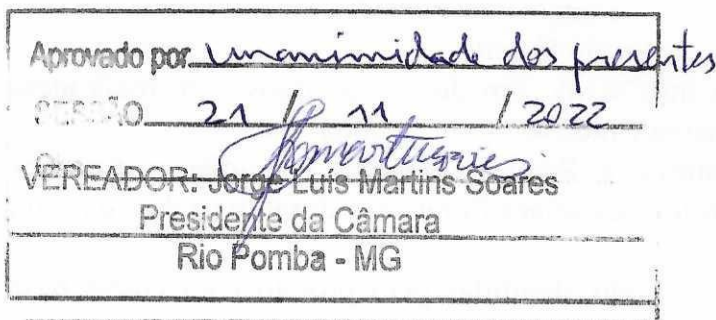 Aprovado por unanimidade dos presentes
SESSÃO 21 / 11 / 2022
VEREADOR: Jorge Luís Martins Soares
Presidente da Câmara
Rio Pomba - MG